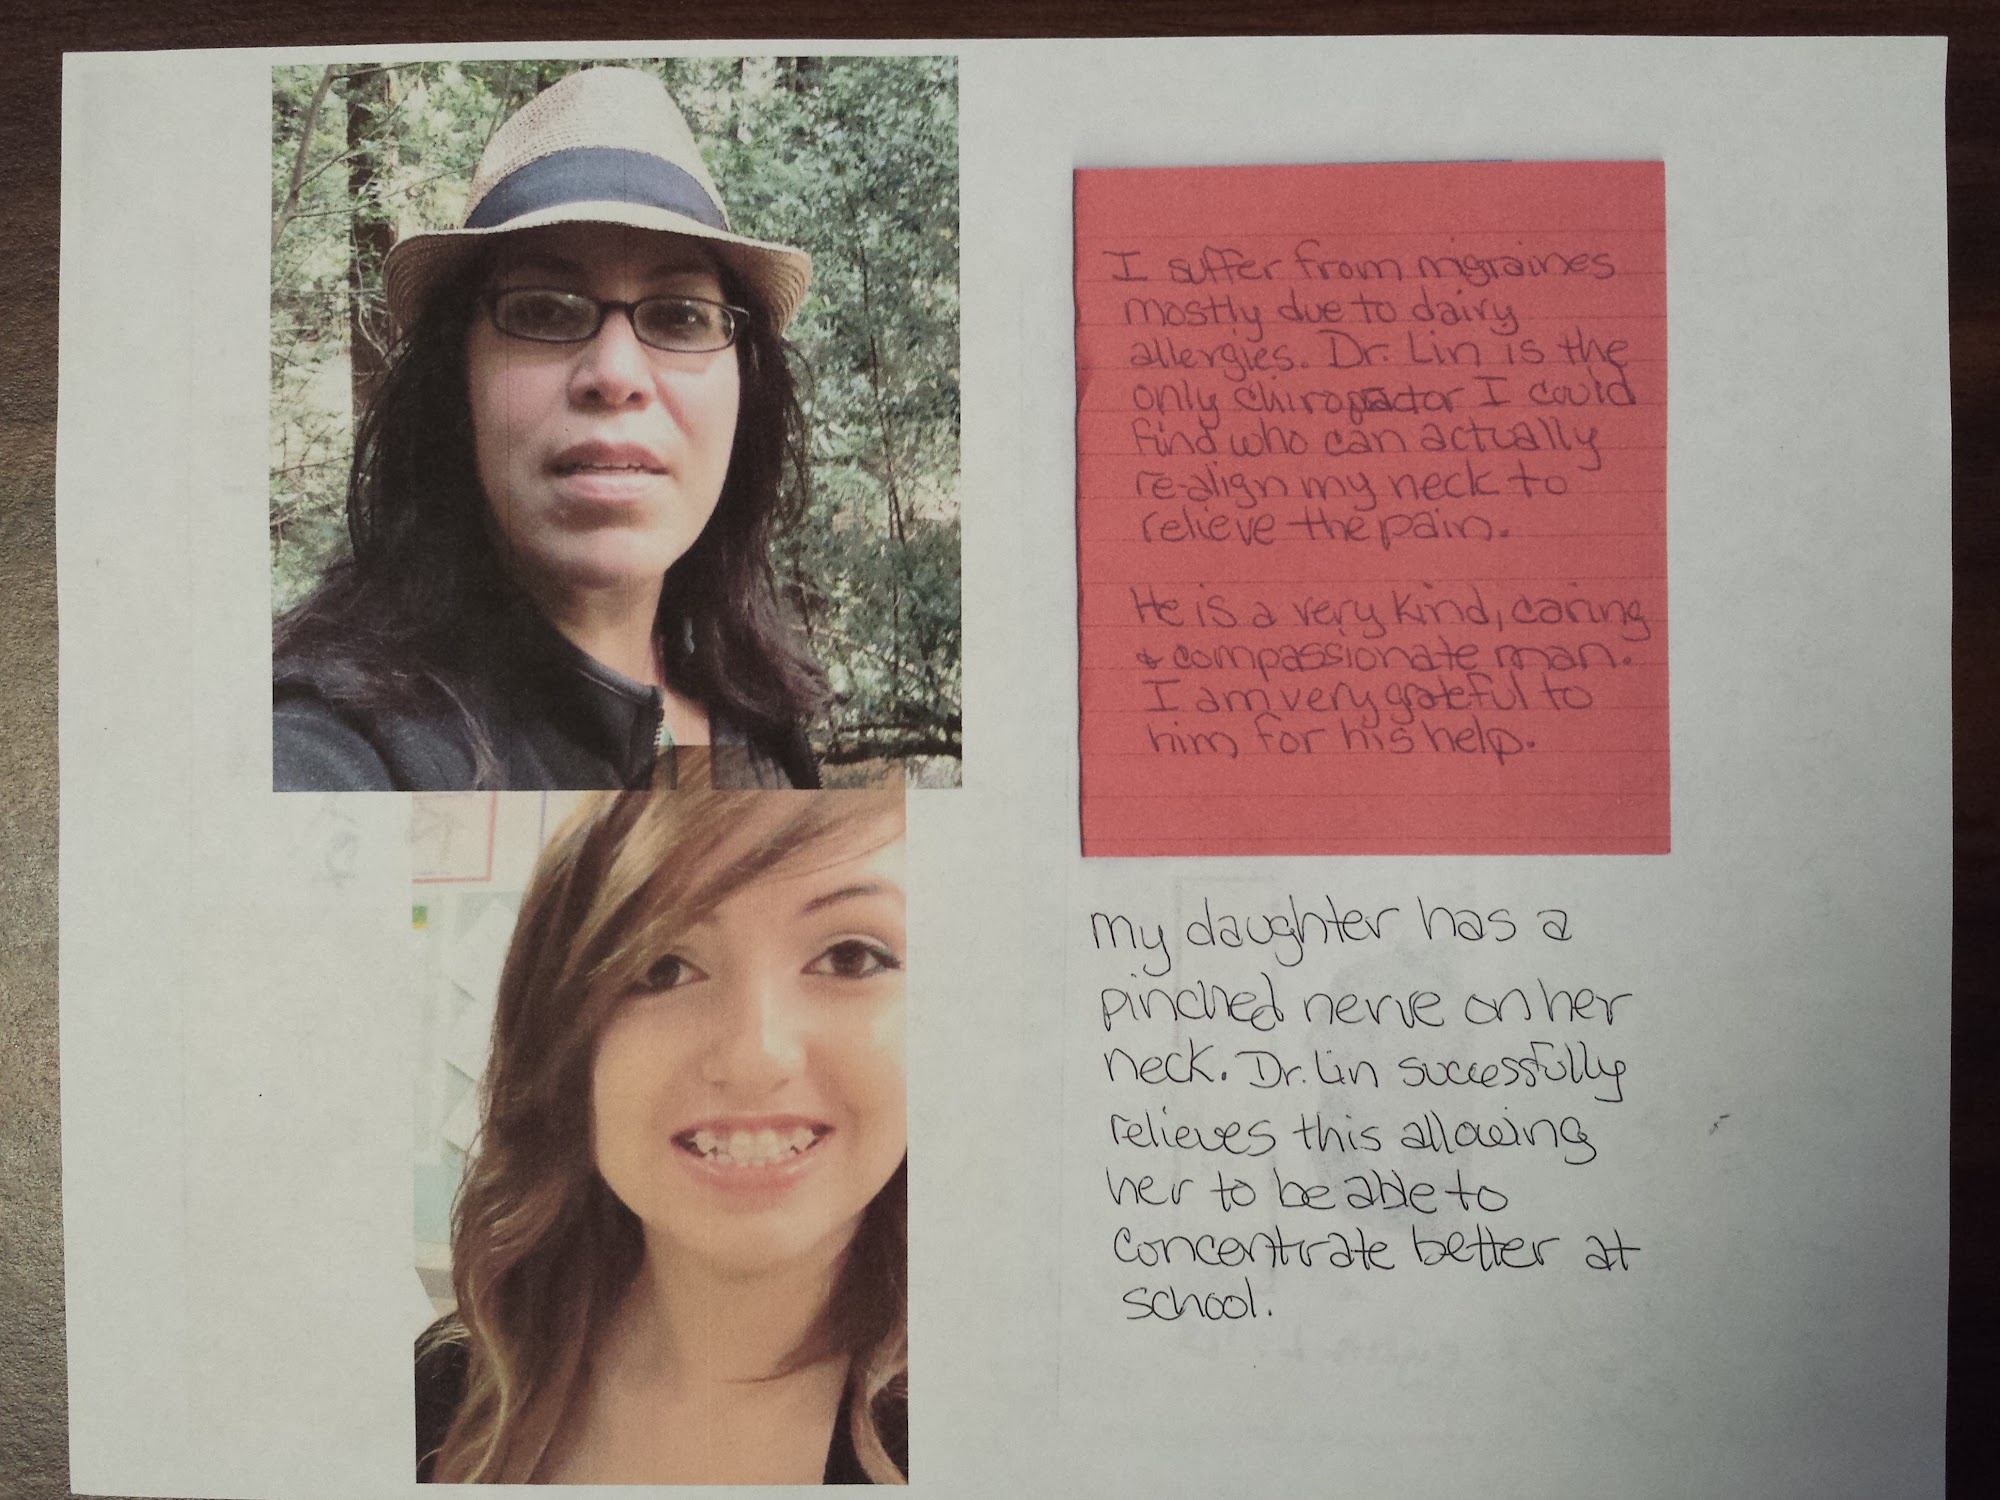 I suffer from migraines
mostly due to dairy
allergies. Dr. Lin is the
only chiropractor I could
find who can actually
re-align my neck to
relieve the pain.
He is a very kind, caring
& compassionate man.
I am very grateful to
him for his help.
my daughter has a
pinched nerve on her
neck. Dr. Lin successfully
relieves this allowing
her to be able to
concentrate better at
school.